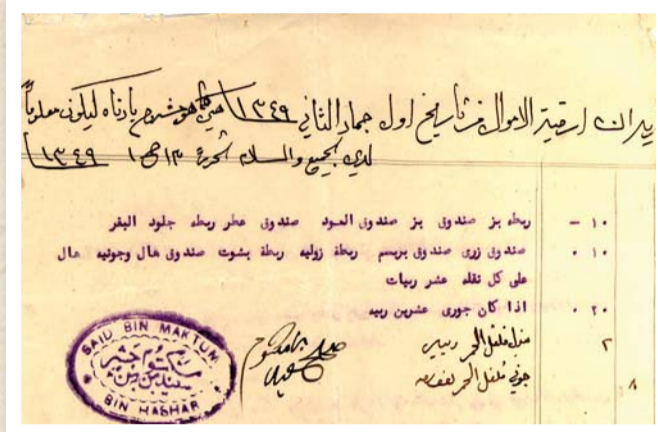 يدان ارقية الاموال من تاريخ اول جماد الثاني ١٣٤٩ هو مشروح بادناه ليكون معلوماً
لدى الجميع والسلام ١٣٤٩
١٠ — ربطه بز صندوق بز صندوق العود صندوق عطر ربطه جلود البقر
١٠ ٠ صندوق زرى صندوق بريسم ربطة زوليه ربطة بشوت صندوق هال وجونيه هال
على كل نقله عشر ربيات
٢٠ ٠ اذا كان جورى عشرين ربيه
٢ فلفل الحر
جوني فلفل الحر
SAID BIN MAKTUM
BIN HASHAR